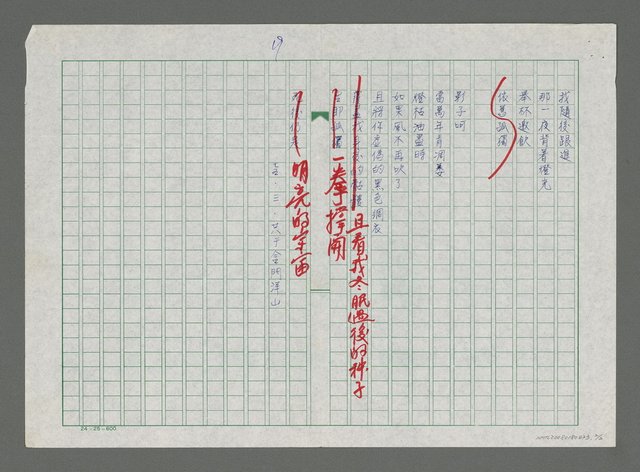 19
我隨後跟進
那一夜背著燈光
舉杯邀飲
依舊孤獨
影子呵
當萬年青凋萎
燈枯油盡時
如果風不再吹了
且將你虛偽的黑色綢衣
且看我冬眠過後的種子
一拳撐開
明亮的宇宙
五.三.廿六于金門洋山
24-25-600